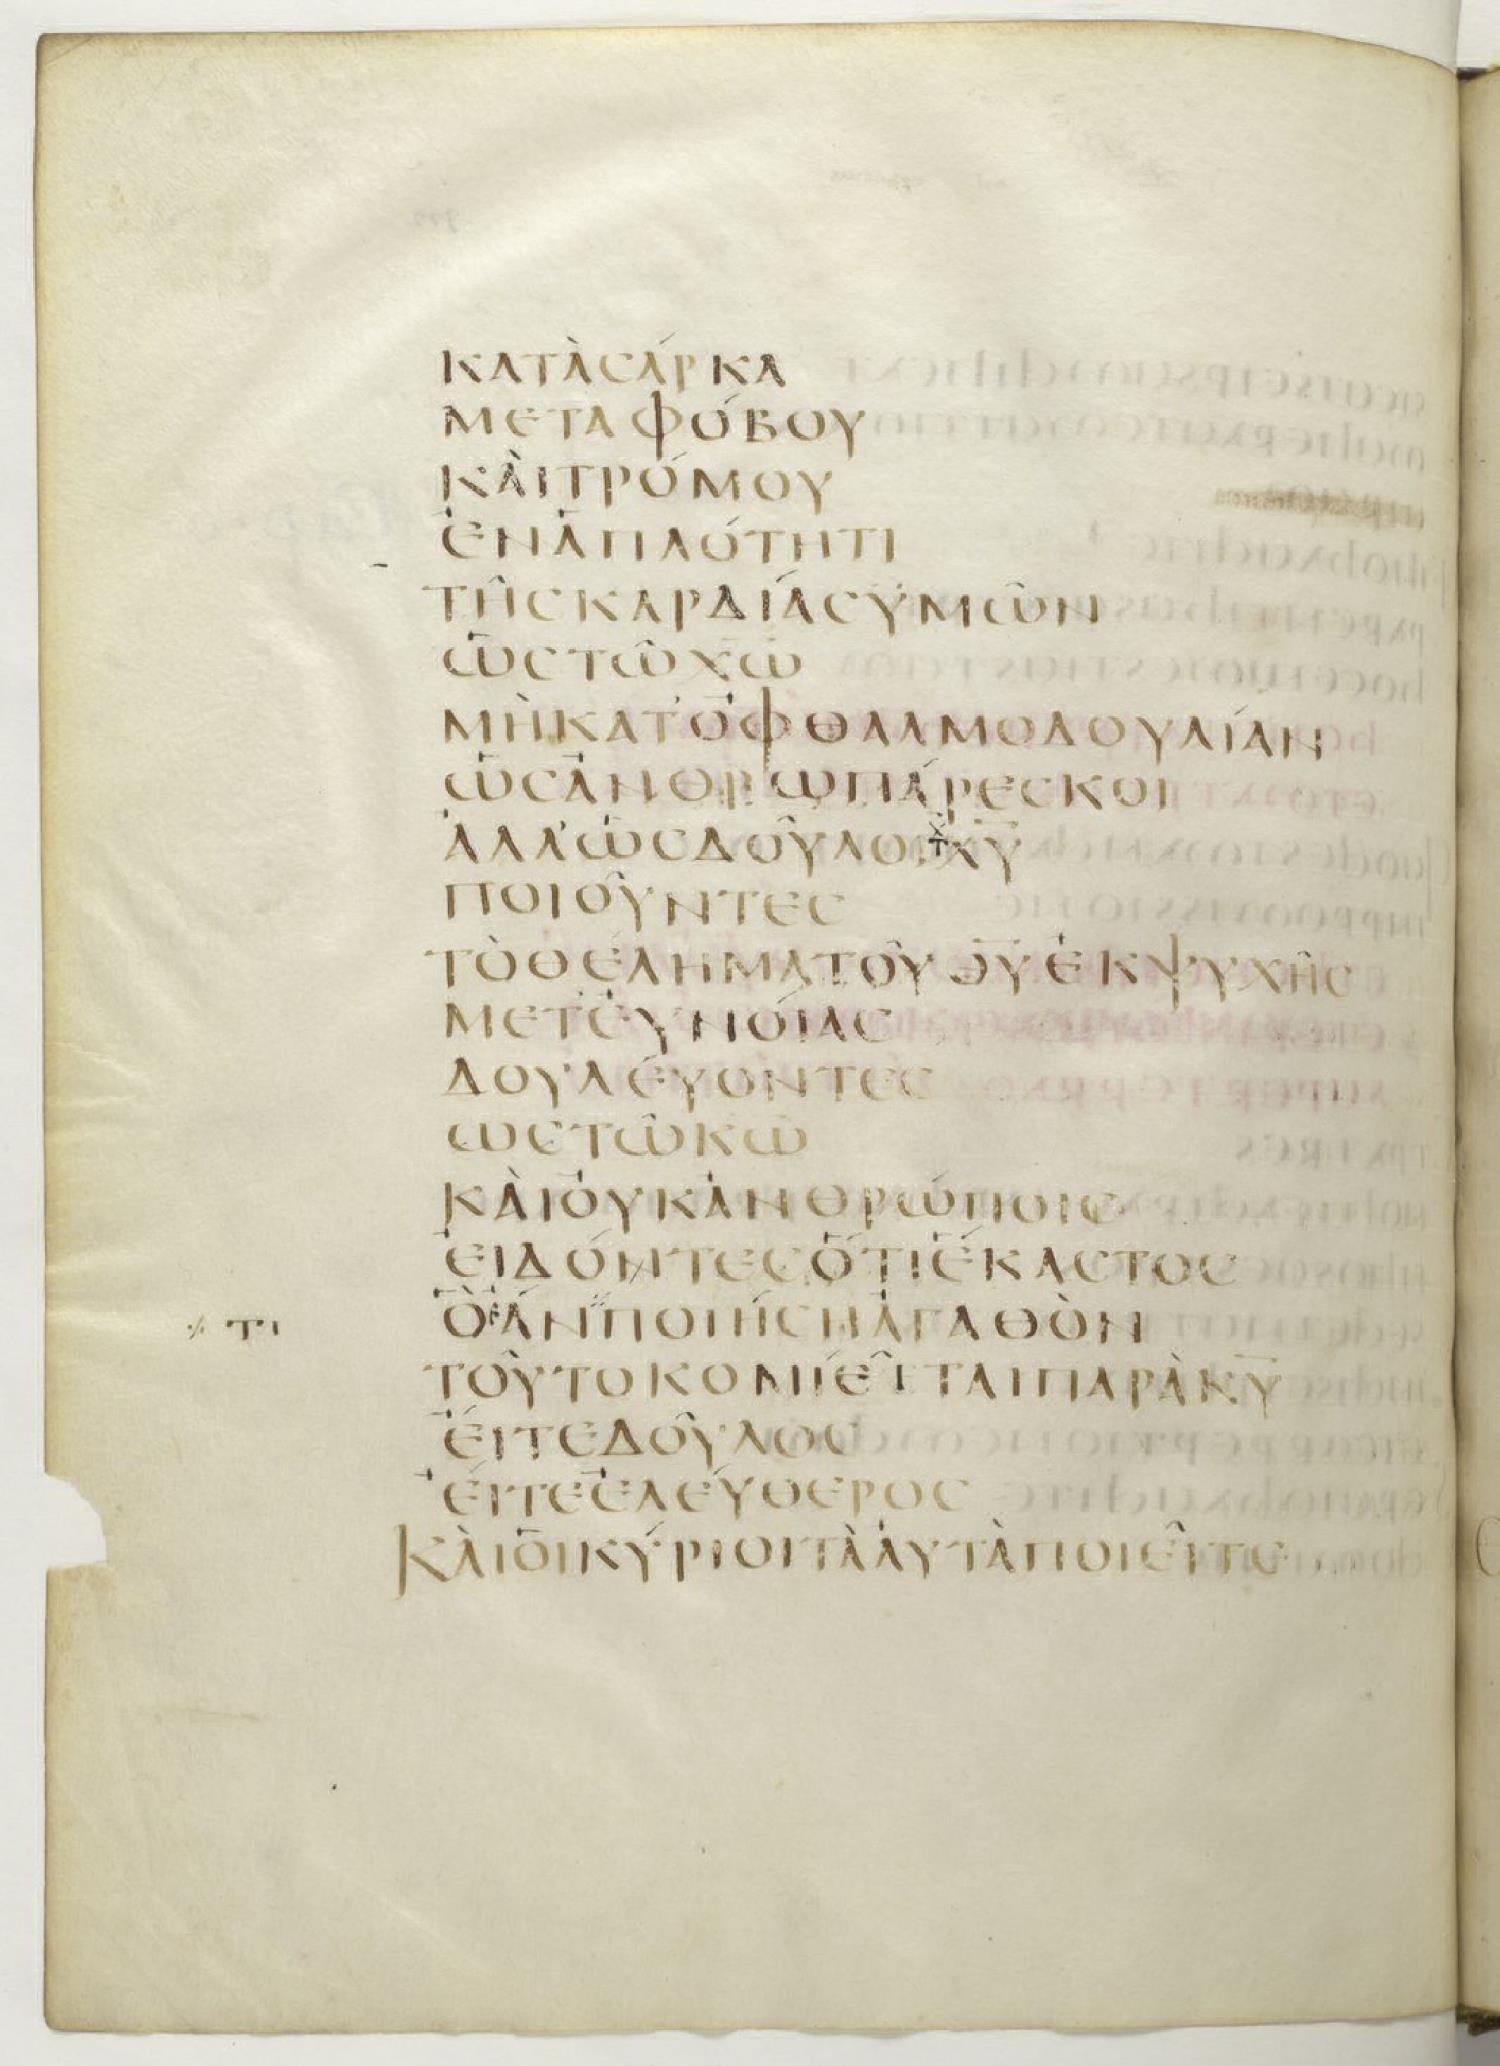 ΚΑΤᾺϹΆΡΚΑ
ΜΕΤΑΦΌΒΟΥ
ΚᾺΙΤΡΌΜΟΥ
ἘΝἉΠΛΌΤΗΤΙ
ΤΗ͂ϹΚΑΡΔΊΑϹΫΜΩ͂Ν
ὩϹΤΩ͂Χ̅Ω̅
ΜῊΚΑΤ᾽ὈΦΘΑΛΜΟΔΟΥΛΊΑΝ
ὩϹἈΝΘΡΩΠΆΡΕϹΚΟΙ
ἈΛΛ᾽ὩϹΔΟΥ͂ΛΟΙΧ̅Υ̅
ΠΟΙΟΥ͂ΝΤΕϹ
ΤῸΘΈΛΗΜΑΤΟΥ͂Θ̅Υ̅ἘΚΨΥΧΗ͂Ϲ
ΜΕΤ᾽ἘΥΝΌΙΑϹ
ΔΟΥΛΈΥΟΝΤΕϹ
ΩϹΤΩ͂Κ̅Ω̅
ΚᾺΙὈΥΚἈΝΘΡΏΠΟΙϹ
ἘΙΔΌΝΤΕϹὍΤΙἝΚΑϹΤΟϹ
⁒ ΤΙ ὋἌΝΠΟΙΉϹΗἈΓΑΘῸΝ
ΤΟΥ͂ΤΟΚΟΜΙΕΙ͂ΤΑΙΠΑΡᾺΚ̅Υ̅
ἘΊΤΕΔΟΥ͂ΛΟϹ
ἘΊΤΕἘΛΈΥΘΕΡΟϹ
ΚᾺΙὉΙΚΎΡΙΟΙΤᾺἈΥΤᾺΠΟΙΕΙ͂ΤΕ